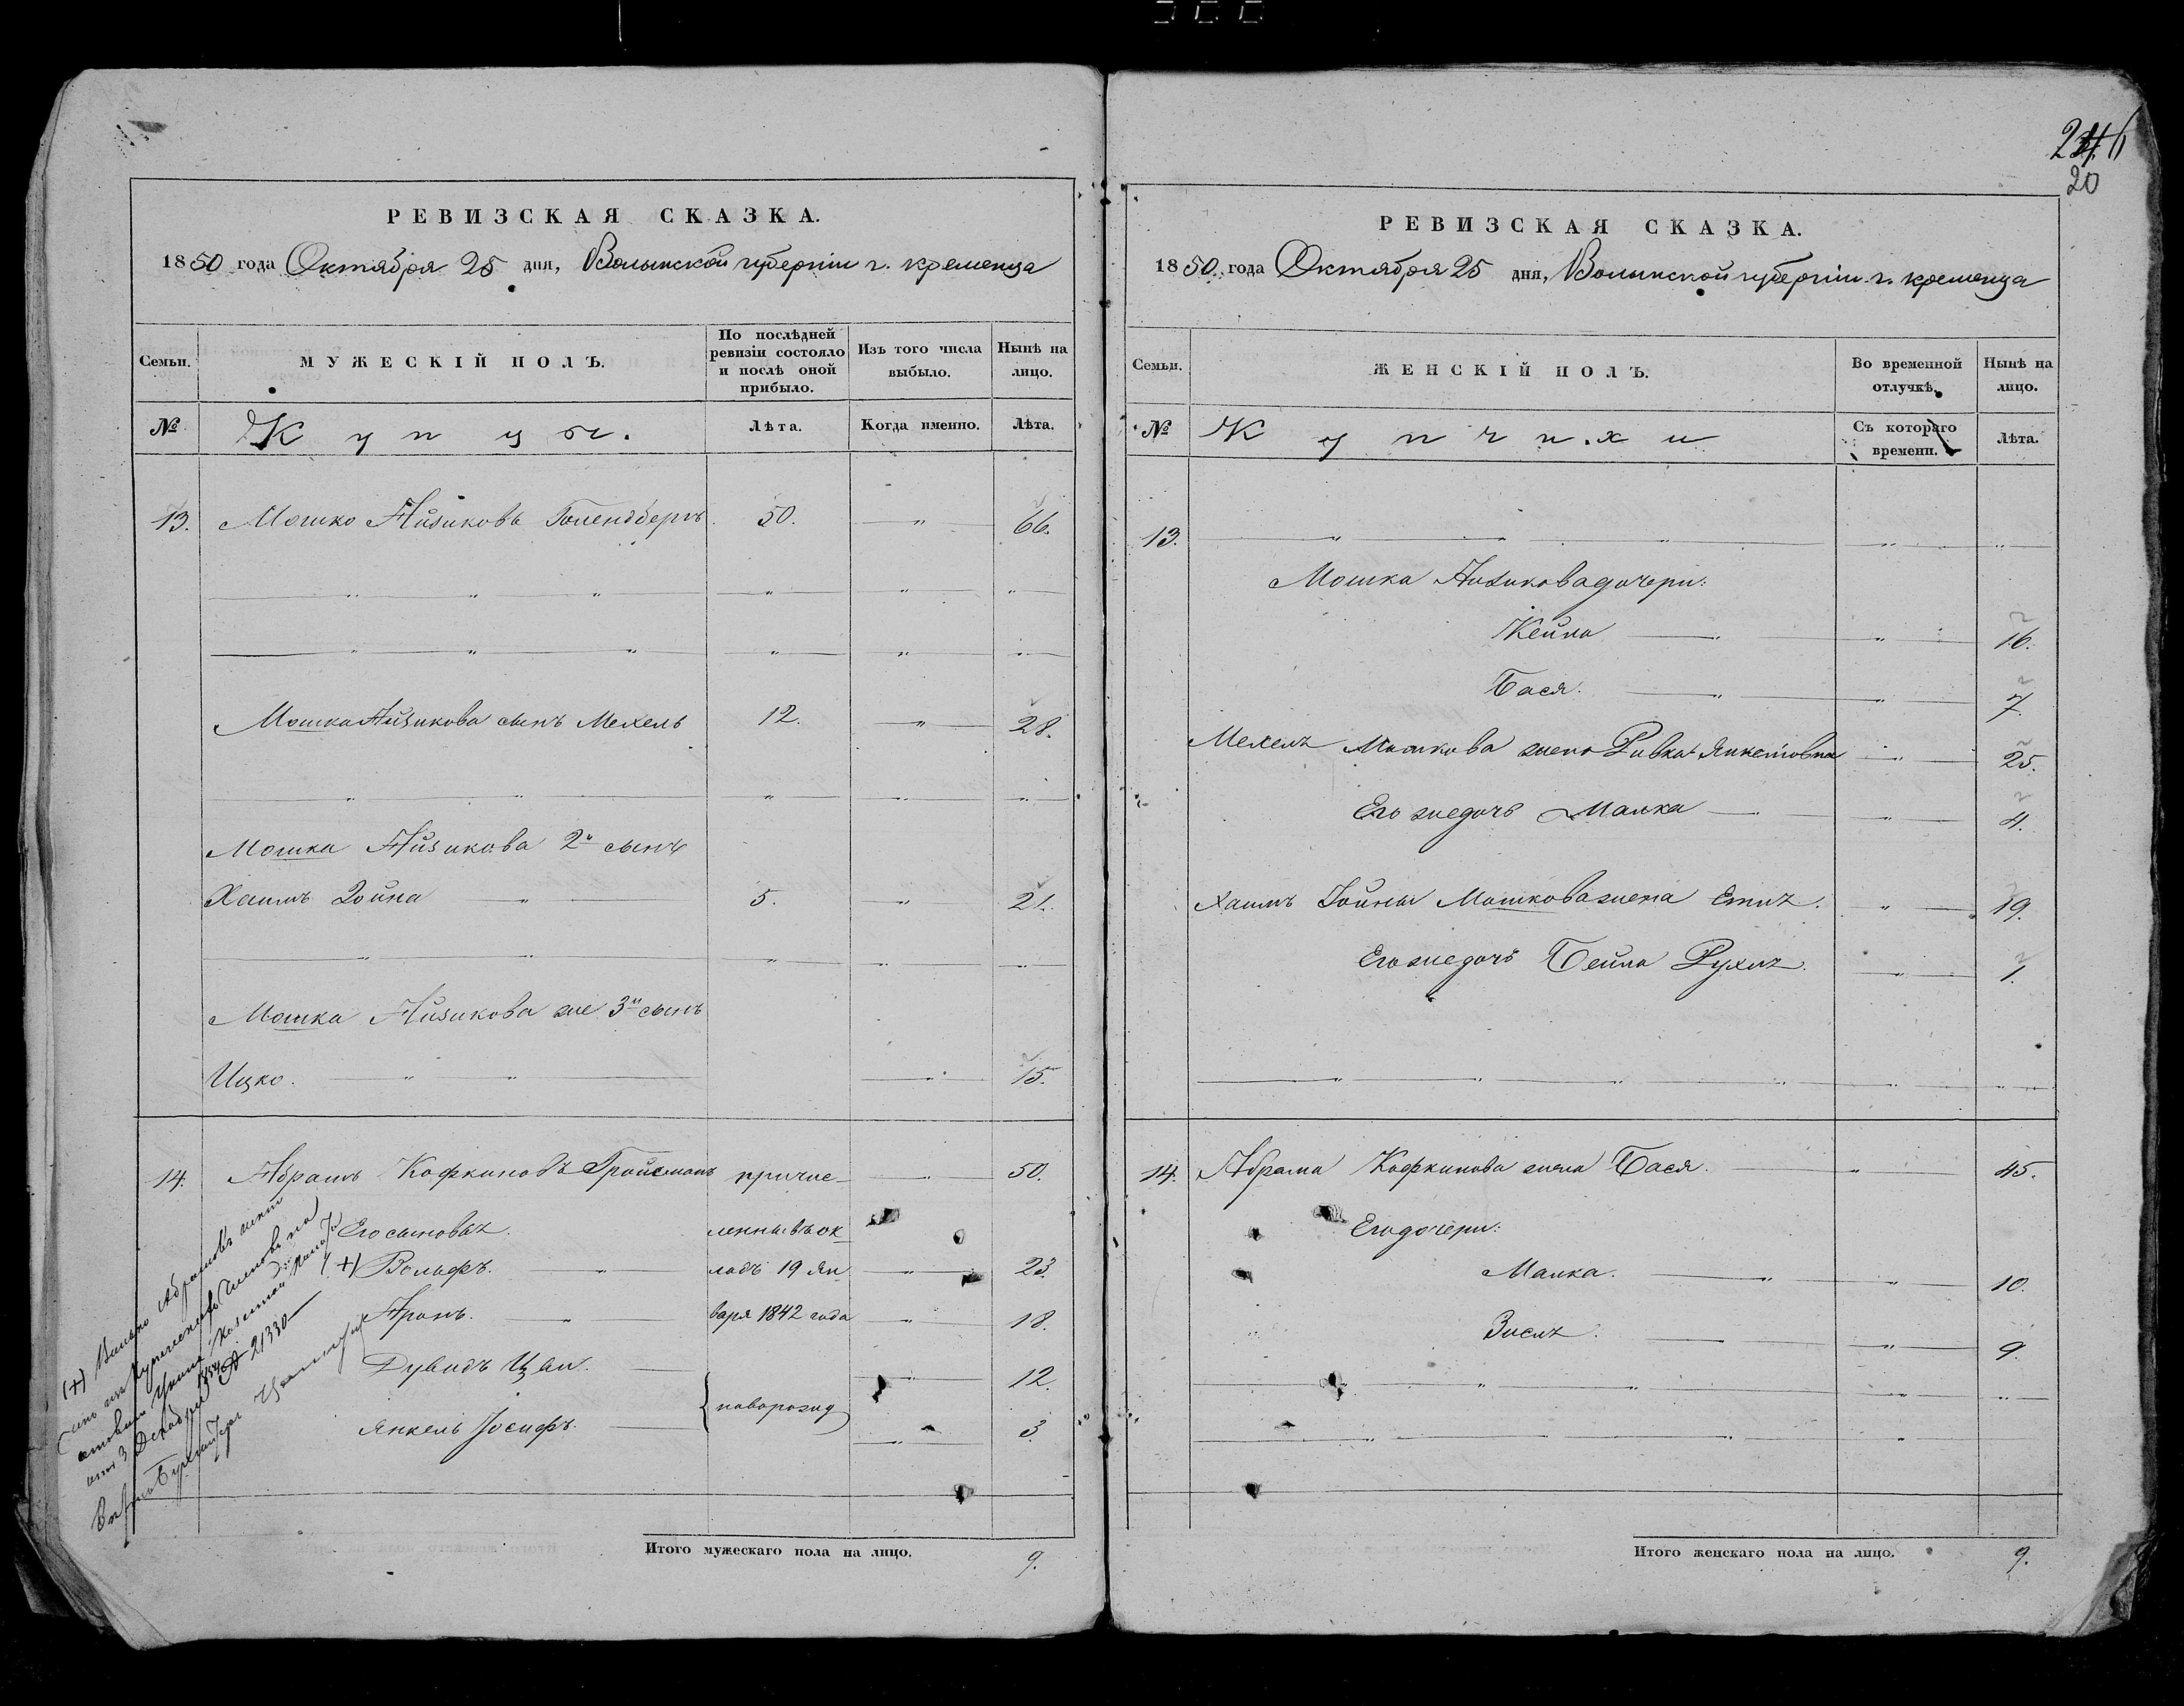 246
20
РЕВИЗСКАЯ СКАЗКА.
1850 года Октября 25 дня, Волынской губернiи г. кременца
Семьи.
МУЖЕСКIЙ ПОЛЪ.
По послѣдней ревизiи состояло и послѣ оной прибыло.
Изъ того числа выбыло.
Нынѣ на лицо.
№
Купцы.
Лѣта.
Когда именно.
Лѣта.
13. Мошко Айзиковъ Голендберъ. 50. " 66.
Мошка Айзикова сынъ Мехель 12. " 28.
Мошка Айзикова 2й сынъ
Хаимъ Иойна " 5. " 21.
Мошка Айзикова же 3й сынъ
Ицко. " " " 15.
14. Абрамъ Кофкиновъ Гройсманъ причис- " 50.
Его сыновья. ленны въ ок-
(+) Вольфъ. " ладъ 19 Ян- " 23.
Аронъ. " варя 1842 года " 18.
Дувидъ Цви. " 12.
Янкель Iосифъ. новорожд " 3.
(+) Абрамовъ
3 Декабря № 21330
Итого мужескаго пола на лицо. 9.
РЕВИЗСКАЯ СКАЗКА.
1850 года Октября 25 дня, Волынской губернiи г. кременца
Семьи.
ЖЕНСКIЙ ПОЛЪ.
Во временной отлучкѣ.
Нынѣ на лицо.
№
Купчихи
Съ котораго времени.
Лѣта.
13. " " " " "
Мошка Айзикова дочери:
Кейла " " 16.
Бася. " " 7.
Мехеля Мошкова жена Ривка Янкелiовна " 25.
Его же дочь Малка " 4.
Хаимъ Iойны Мошкова жена Етя. " 19.
Его же дочь Бейла Рухля. " 1.
14. Абрама Кофкинова жена Бася. " 45.
Его дочери:
Малка. " " 10.
Зися. " 9.
Итого женскаго пола на лицо. 9.